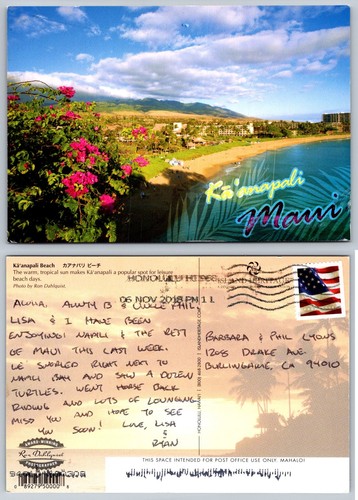 Kā'anapali
Maui
Kā'anapali Beach カアナパリ ビーチ
The warm, tropical sun makes Kā'anapali a popular spot for leisure
beach days.
Photo by Ron Dahlquist.
HONOLULU HI
06 NOV 2018 PM 1 L
ALOHA, AUNTY B & UNCLE PHIL!
LISA & I HAVE BEEN
ENJOYING NAPILI & THE REST
OF MAUI THIS LAST WEEK.
WE SNORKED RIGHT NEXT TO
NAPILI BAY AND SAW A DOZEN
TURTLES. WENT HORSE BACK
RIDING AND LOTS OF LOUNGING.
MISS YOU AND HOPE TO SEE
YOU SOON! LOVE, LISA
&
RYAN
BARBARA & PHIL LYONS
1208 DRAKE AVE.
BURLINGAME, CA 94010
Ron Dahlquist
PHOTOGRAPHER
THIS SPACE INTENDED FOR POST OFFICE USE ONLY. MAHALO!
8 89279 50000 8